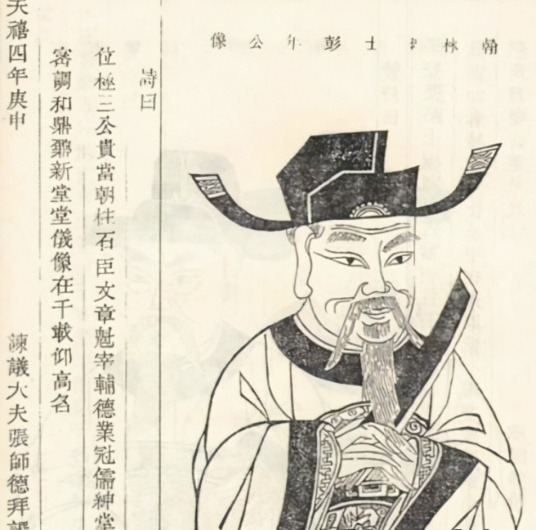 翰林士彭年公像
詩曰
位極三公貴當朝柱石臣文章魁宰輔德業冠儒紳
密調和鼎鼐新堂堂儀像在千載仰高名
天禧四年庚申
諫議大夫張師德拜